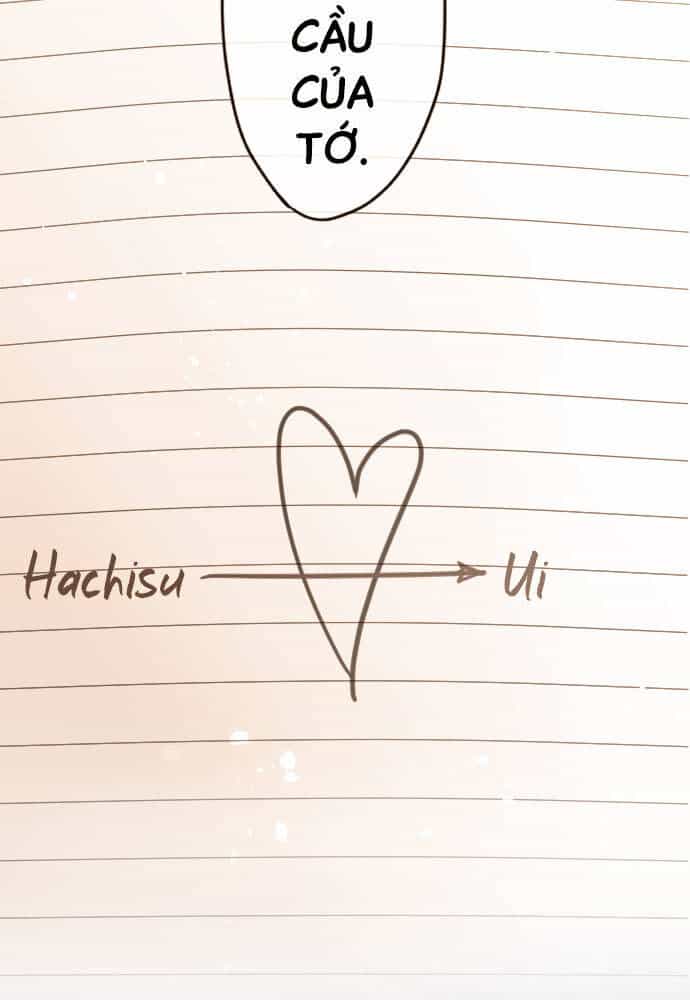 CẦU
CỦA
TỚ.
Hachisu Ui